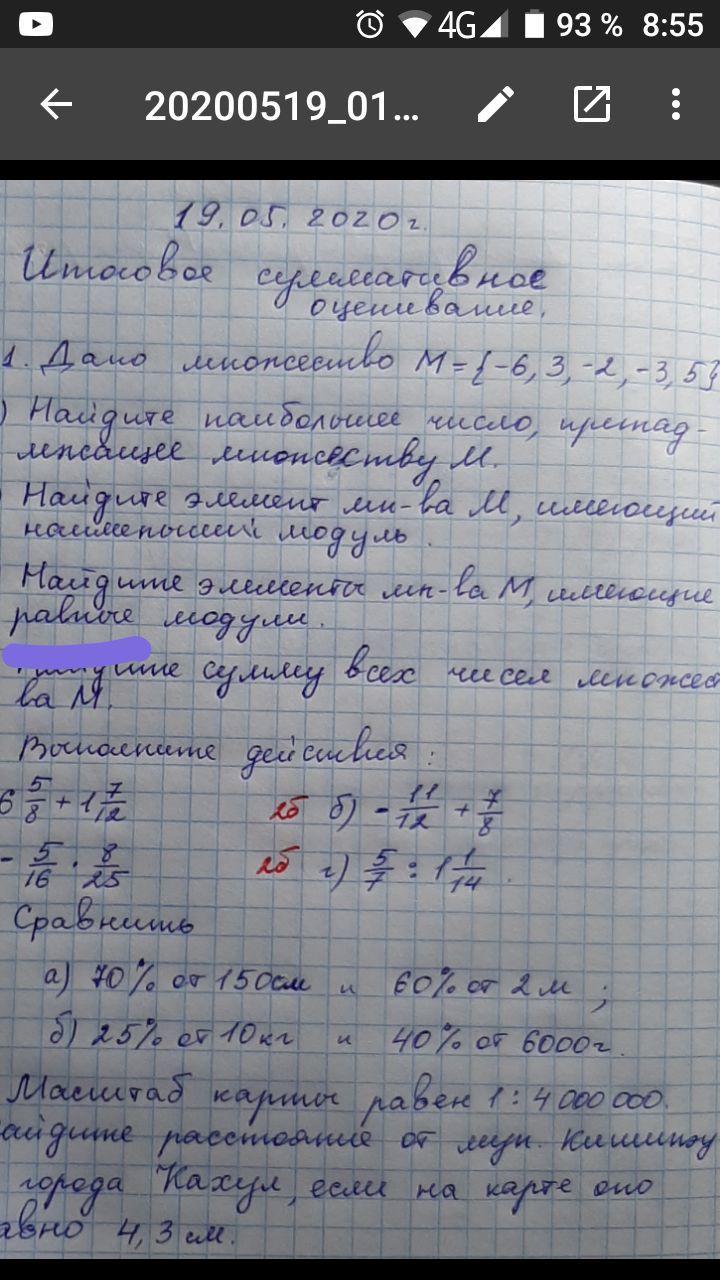 4G 93 % 8:55
20200519_01...
19.05.2020г.
Итоговое суммативное
оценивание.
1. Дано множество M={-6, 3, -2, -3, 5}
) Найдите наибольшее число, принад-
лежащее множеству М.
Найдите элемент мн-ва М, имеющий
наименьший модуль.
Найдите элементы мн-ва М, имеющие
равные модули.
сумму всех чисел множес
ва М.
Выполните действия:
6 5/8 + 1 7/12 2б б) - 11/12 + 7/8
- 5/16 · 8/25 2б г) 5/7 : 1 1/14.
Сравнить
а) 70% от 150см и 60% от 2 м ;
б) 25% от 10кг и 40% от 6000г.
Масштаб карты равен 1 : 4 000 000.
айдите расстояние от мун. Кишинэу
города Кахул, если на карте оно
авно 4,3 см.